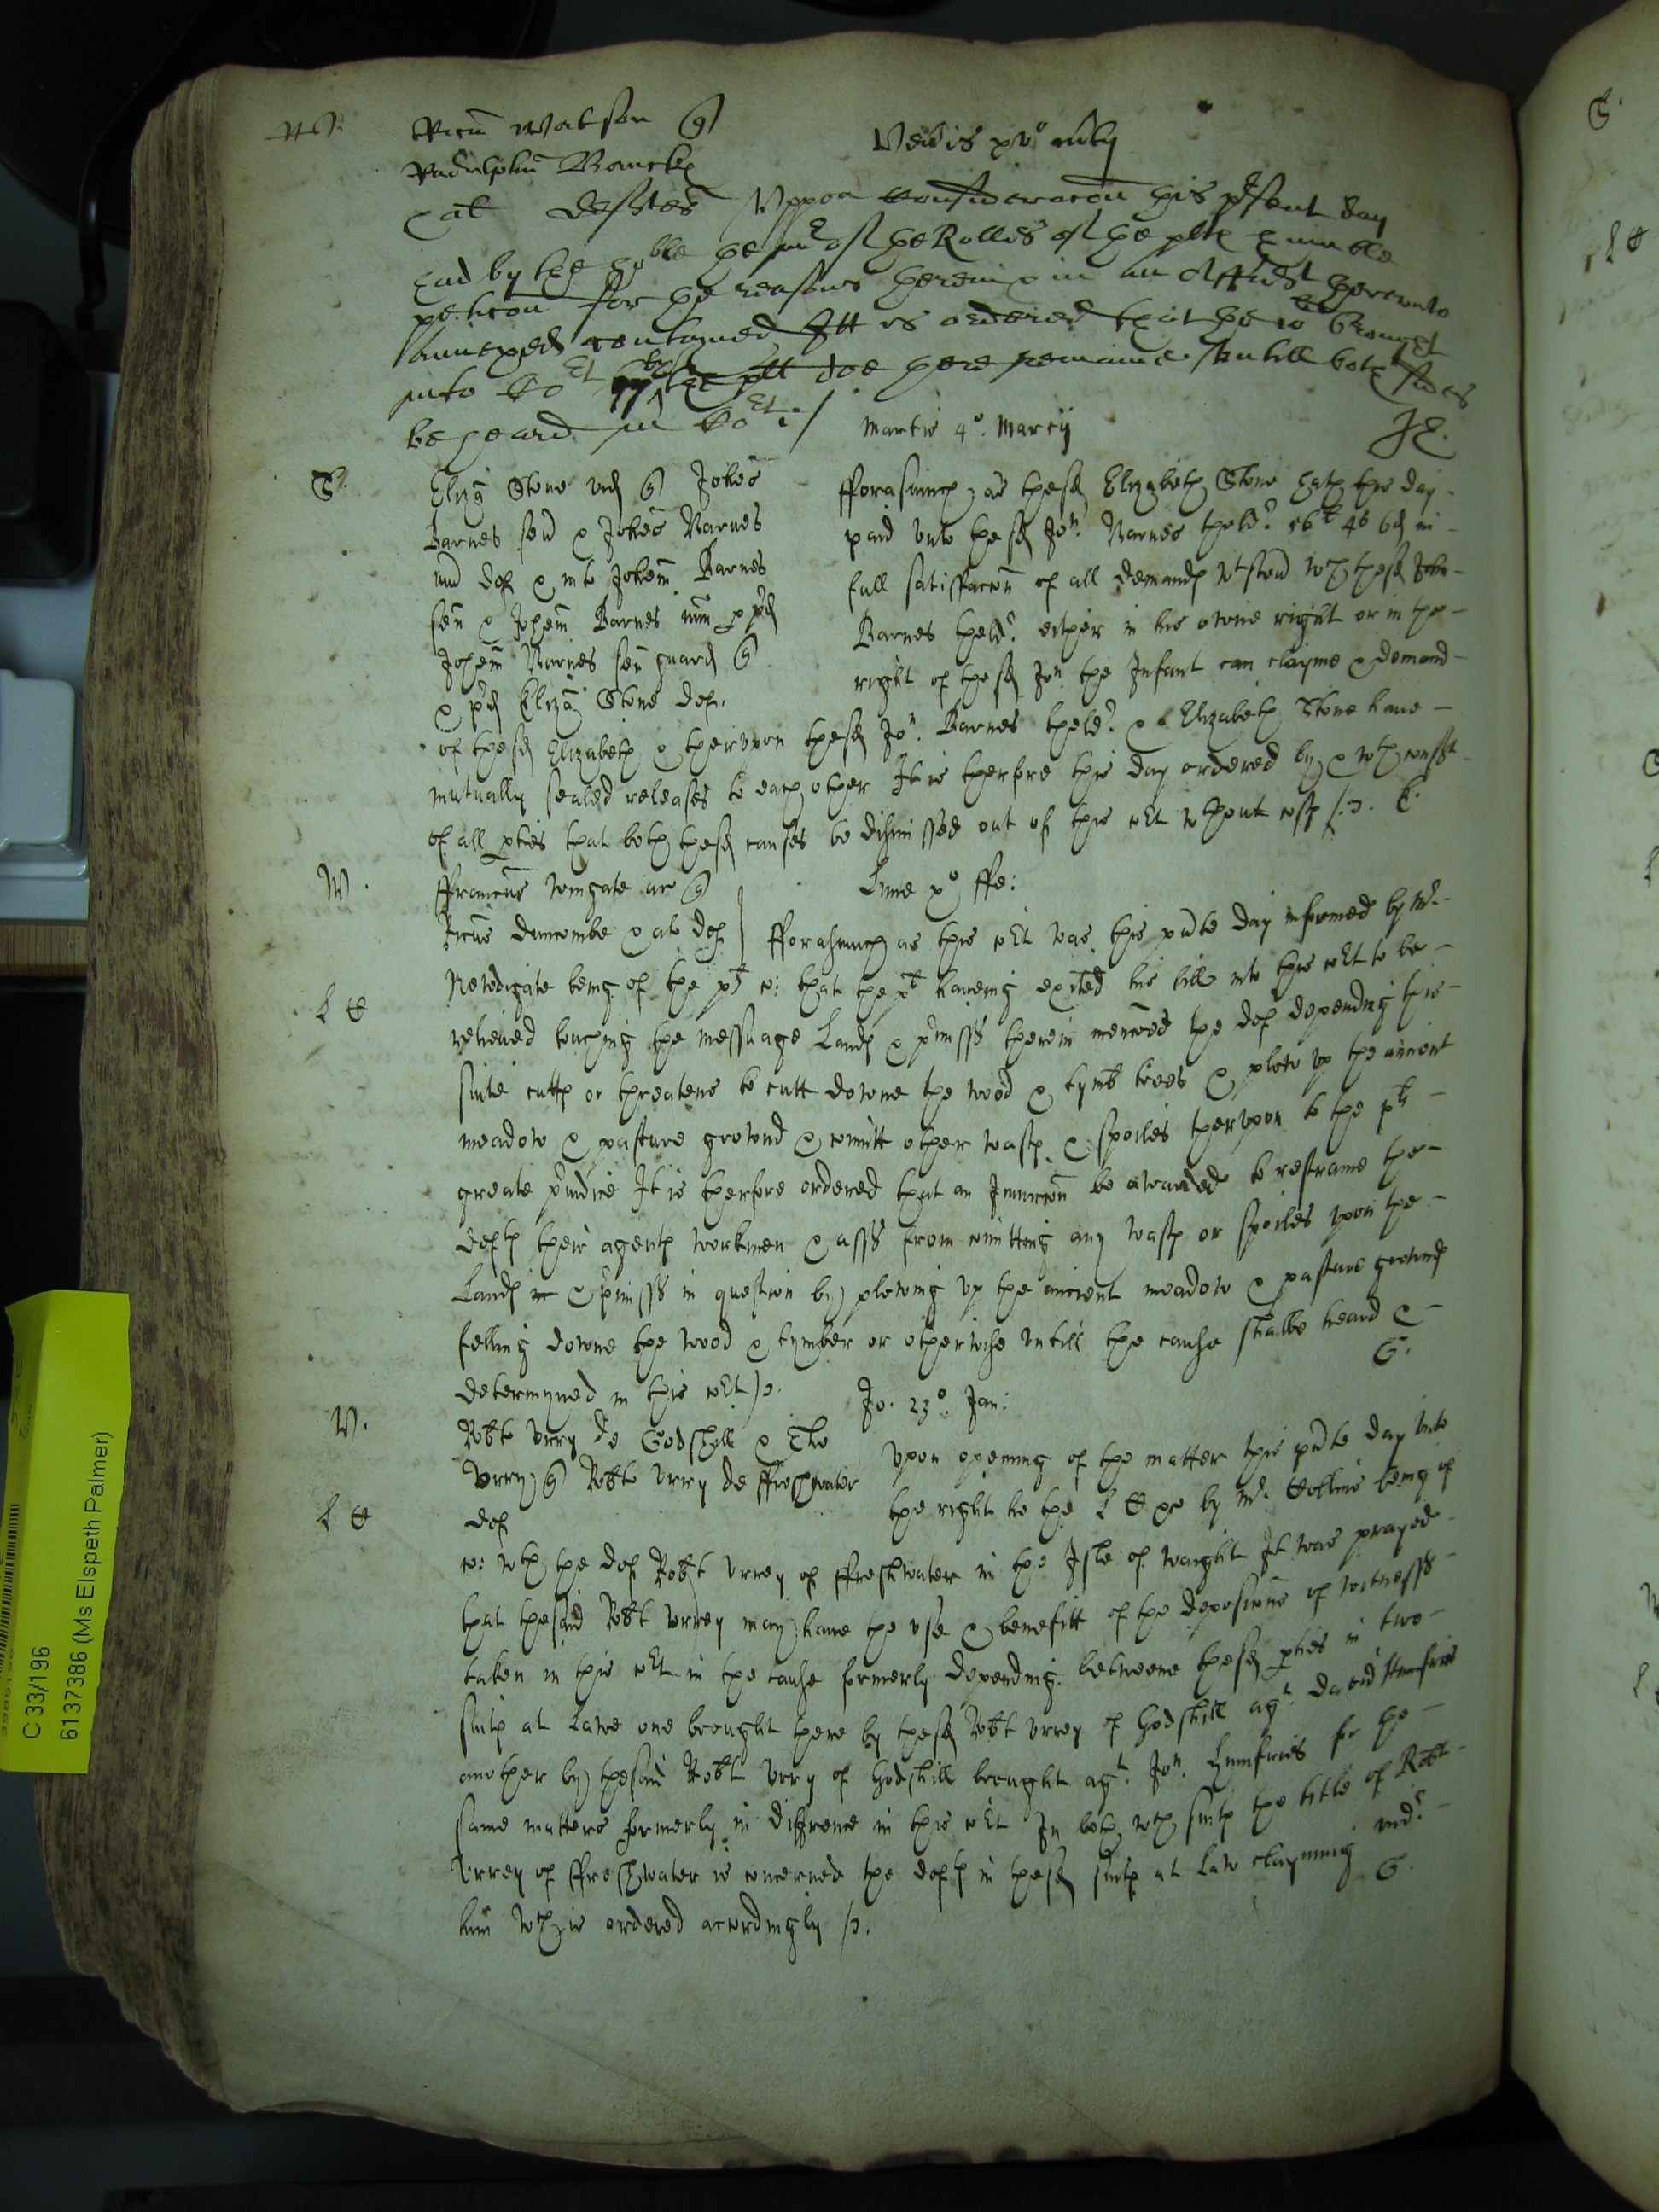 W.
Ricus Watson
Radulphus Bancks
et al defftes
Veneris primo
Uppon consideracon this present day
had by the hoble the mr of the Rolles of the plts humble
peticon for the reasons therein & in an affidt thereunto
annexed contayned Itt is ordered that the be brought
into Court by the plt doe there remaine untill both sides
be heard in Court /
S.
Martis 4o. Marcij
Eliza Stone vid Johes
Barnes sen & Johes Barnes
iun def & into Johem Barnes
sen & Johem Barnes iun p pred
Johem Barnes sen guard
& pred Eliza Stone def.
fforasmuch as the sd Elizabeth Stone hath this day
paid unto the sd Jon. Barnes theld. 4s 6d in
full satisfaccon of all demands wch the sd John
Barnes theld. either in his owne right or in the
right of the sd Jon the Infant can clayme & demand
of the sd Elizabeth & therupon the sd Jon. Barnes theld. & Elizabeth Stone have
mutually sealed releases to each other It is therfore this day ordered by & wth consent
of all pties that both the sd causes be dismissed out of this cort wthout costs
W.
ffrancus Wingate ar
Ricus Duncombe & al def
Lune po ffe:
fforasmuch as this cort was this pnte day informed by Mr.
Newdigate being of the plts c: that the plt haveing exited his bill into this cort to be
releived touching the messuage Lands & pmisses therein menconed the def depending this
suite cutts or threatens to cutt downe the wood & tymb trees & plow up the ancient
meadow & pasture ground & comitt other wasts & spoiles therupon to the plts
greate pudice It is therfore ordered that an Iniunccon be awarded to restraine the
defts their agents workmen & asss from comitting any wasts or spoiles upon the
Lands & pmisss in question by plowing up the ancient meadow & pasture grounds
felling downe the wood & tymber or otherwise untill the cause shalbe heard &
determyned in this cort
G.
V.
Jo. 23o. Jan:
Robte Urry de Godshill & Tho
Urry Robte Urry de ffreshwater
def
Upon opening of the matter this pnte day unto
the right ho the L by Mr. Collins being of
c: wth the def Robt Urrey of ffreshwater in the Isle of Waight It was prayed
that the said Robt Urrey may have the use & benefitt of the deposicons of witnesses
taken in this cort in the cause formerly depending betweene the sd pties in two
suits at Lawe one brought there by the sd Robt Urrey of Godshill agt. David Humfries
another by the said Robt Urry of Godshill brought agt. Jon. Humfries for the
same matters formerly in difference in this cort In both wch suits the title of Robt
Urrey of ffreshwater is concerned the defts in the sd suits at Law clayming und.
him wch is ordered accordingly
G.
C 33/196
6137386 (Ms Elspeth Palmer)